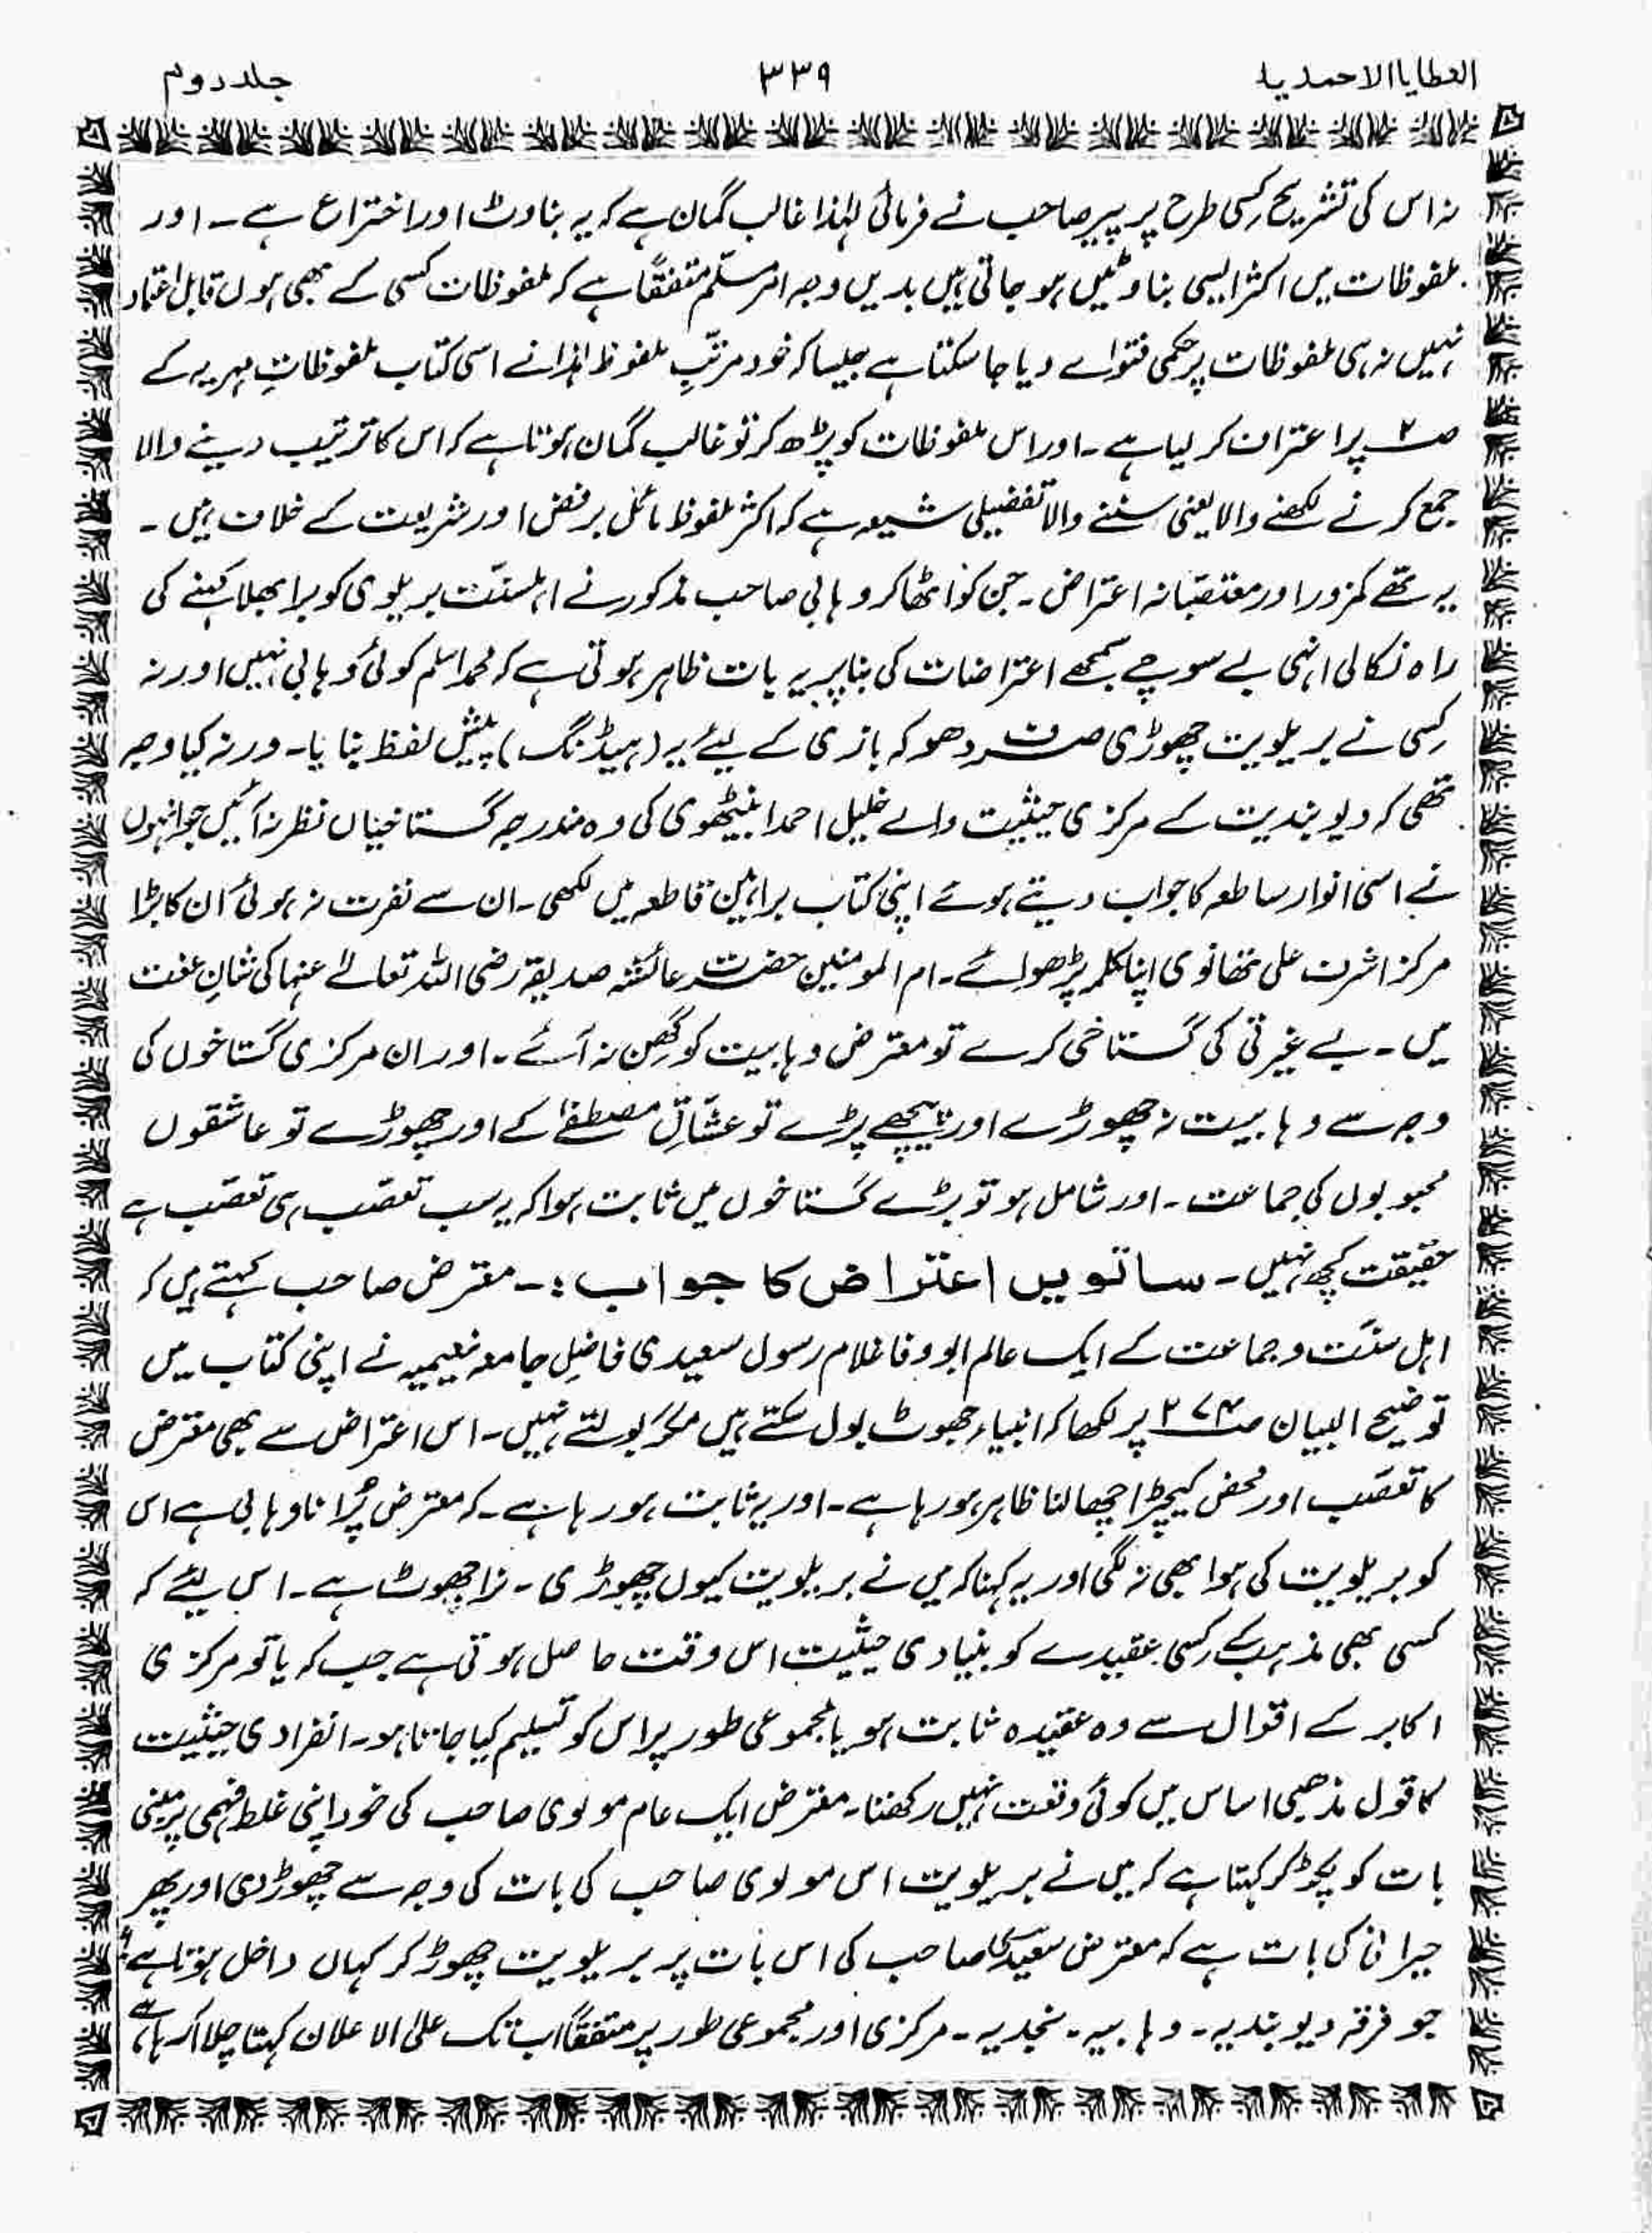 العطایا الاحمدیہ ۳۳۹ جلد دوم
نہ اس کی تشریح کسی طرح پر پیر صاحب نے فرمائی لہٰذا غالب گمان ہے کہ یہ بناوٹ اور اختراع ہے۔ اور
ملفوظات میں اکثر ایسی بناوٹیں ہو جاتی ہیں بدیں وجہ امر مسلّم متفقًا ہے کہ ملفوظات کسی کے بھی ہوں قابل اعتماد
نہیں نہ ہی ملفوظات پر حکمی فتواے دیا جا سکتا ہے جیسا کہ خود مرتبِ ملفوظ ہٰذا نے اسی کتاب ملفوظاتِ مہریہ کے
صـ۲ پر اعتراف کر لیا ہے۔ اور اس ملفوظات کو پڑھ کر تو غالب گمان ہوتا ہے کہ اس کا ترتیب دینے والا
جمع کرنے لکھنے والا یعنی سننے والا تفضیلی شیعہ ہے کہ اکثر ملفوظ مائل برفض اور شریعت کے خلاف ہیں۔
یہ تھے کمزور اور متعصّبانہ اعتراض۔ جن کو اٹھا کر وہابی صاحب مذکور نے اہلسنّت بریلوی کو برا بھلا کہنے کی
راہ نکالی انہی بے سوچے سمجھے اعتراضات کی بنا پر یہ بات ظاہر ہوتی ہے کہ محمد اسلم کوئی وہابی نہیں اور نہ
کسی نے بریلویت چھوڑی صرف دھوکہ بازی کے لیئے یہ (ہیڈنگ) پیش لفظ بنایا۔ ورنہ کیا وجہ
تھی کہ دیوبندیت کے مرکزی حیثیت والے خلیل احمد انبیٹھوی کی وہ مندرجہ گستاخیاں نظر نہ آئیں جو انہوں
نے اسی انوار ساطعہ کا جواب دیتے ہوئے اپنی کتاب براہین قاطعہ میں لکھی۔ ان سے نفرت نہ ہوئی ان کا بڑا
مرکز اشرف علی تھانوی اپنا کلمہ پڑھوائے۔ ام المومنین حضرت عائشہ صدیقہ رضی اللہ تعالےٰ عنہا کی شانِ عفت
میں۔ بے غیرتی کی گستاخی کرے تو معترض وہابیت کو گھِن نہ آئے۔ اور ان مرکزی گستاخوں کی
وجہ سے وہابیت نہ چھوڑے اور پیچھے پڑے تو عشّاقِ مصطفےٰ کے اور چھوڑے تو عاشقوں
محبوبوں کی جماعت۔ اور شامل ہو تو بڑے گستاخوں میں ثابت ہوا کہ یہ سب تعصّب ہی تعصّب ہے
حقیقت کچھ نہیں۔ ساتویں اعتراض کا جواب :۔ معترض صاحب کہتے ہیں کہ
اہل سنّت و جماعت کے ایک عالم ابو وفا غلام رسول سعیدی فاضلِ جامعہ نعیمیہ نے اپنی کتاب میں
توضیح البیان صـ۲۷۴ پر لکھا کہ انبیاء جھوٹ بول سکتے ہیں مگر بولتے نہیں۔ اس اعتراض سے بھی معترض
کا تعصّب اور محض کیچڑ اچھالنا ظاہر ہو رہا ہے۔ اور یہ ثابت ہو رہا ہے۔ کہ معترض پُرانا وہابی ہے اس
کو بریلویت کی ہوا بھی نہ لگی اور یہ کہنا کہ میں نے بریلویت کیوں چھوڑی۔ نرا جھوٹ ہے۔ اس لیئے کہ
کسی بھی مذہب کے کسی عقیدے کو بنیادی حیثیت اس وقت حاصل ہوتی ہے جب کہ یا تو مرکزی
اکابر کے اقوال سے وہ عقیدہ ثابت ہو یا مجموعی طور پر اس کو تسلیم کیا جاتا ہو۔ انفرادی حیثیت
کا قول مذھبی اساس میں کوئی وقعت نہیں رکھتا۔ معترض ایک عام مولوی صاحب کی خود اپنی غلط فہمی پر مبنی
بات کو پکڑ کر کہتا ہے کہ میں نے بریلویت اس مولوی صاحب کی بات کی وجہ سے چھوڑ دی اور پھر
حیرانی کی بات ہے کہ معترض سعیدی صاحب کی اس بات پر بریلویت چھوڑ کر کہاں داخل ہوتا ہے؟
جو فرقہ دیوبندیہ۔ وہابیہ۔ نجدیہ۔ مرکزی اور مجموعی طور پر متفقًا اب تک علیٰ الاعلان کہتا چلا آ رہا ہے